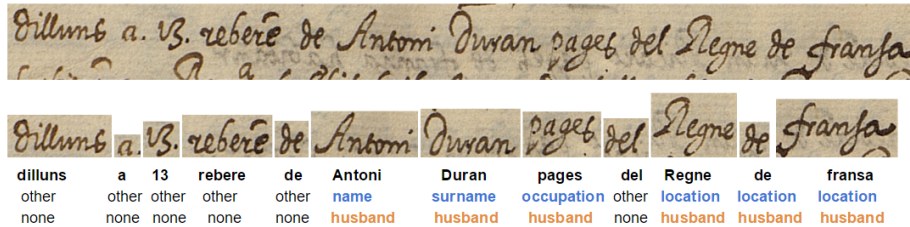 dilluns a. 13. reberē de Antoni Duran pages del Regne de fransa
dilluns a. 13. reberē de Antoni Duran pages del Regne de fransa
dilluns a 13 rebere de Antoni Duran pages del Regne de fransa
other other other other other name surname occupation other location location location
none none none none none husband husband husband none husband husband husband